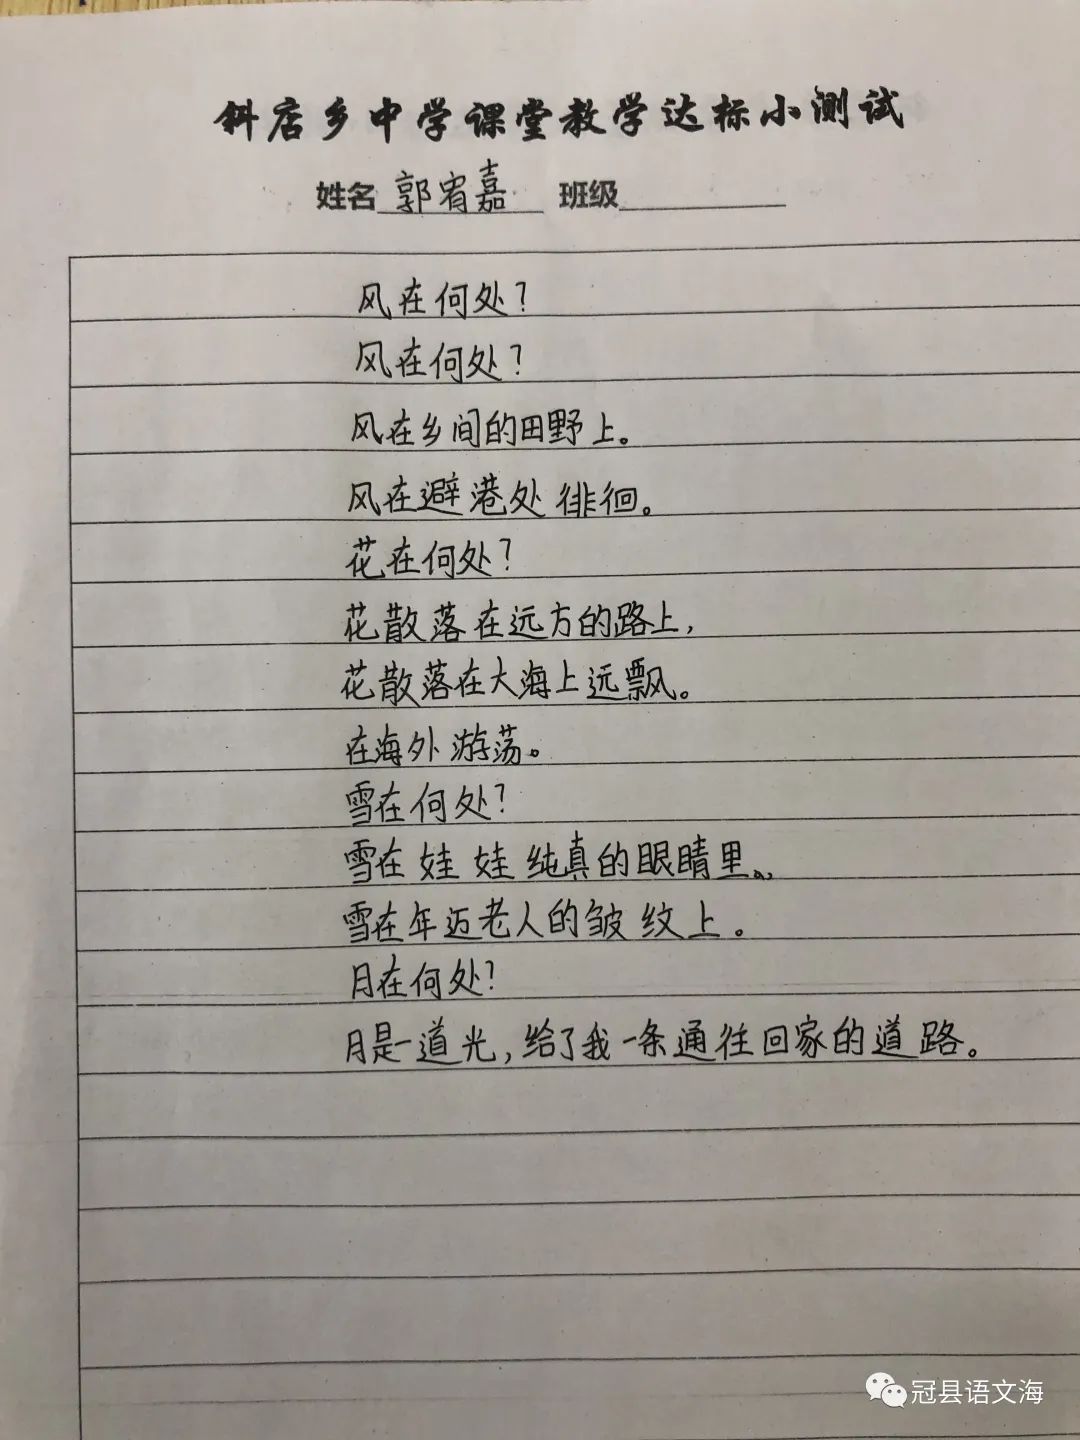 斜店乡中学课堂教学达标小测试
姓名 郭宥嘉 班级
风在何处？
风在何处？
风在乡间的田野上。
风在避港处徘徊。
花在何处？
花散落在远方的路上，
花散落在大海上远飘。
在海外游荡。
雪在何处？
雪在娃娃纯真的眼睛里。，
雪在年迈老人的皱纹上。
月在何处？
月是一道光，给了我一条通往回家的道路。
冠县语文海